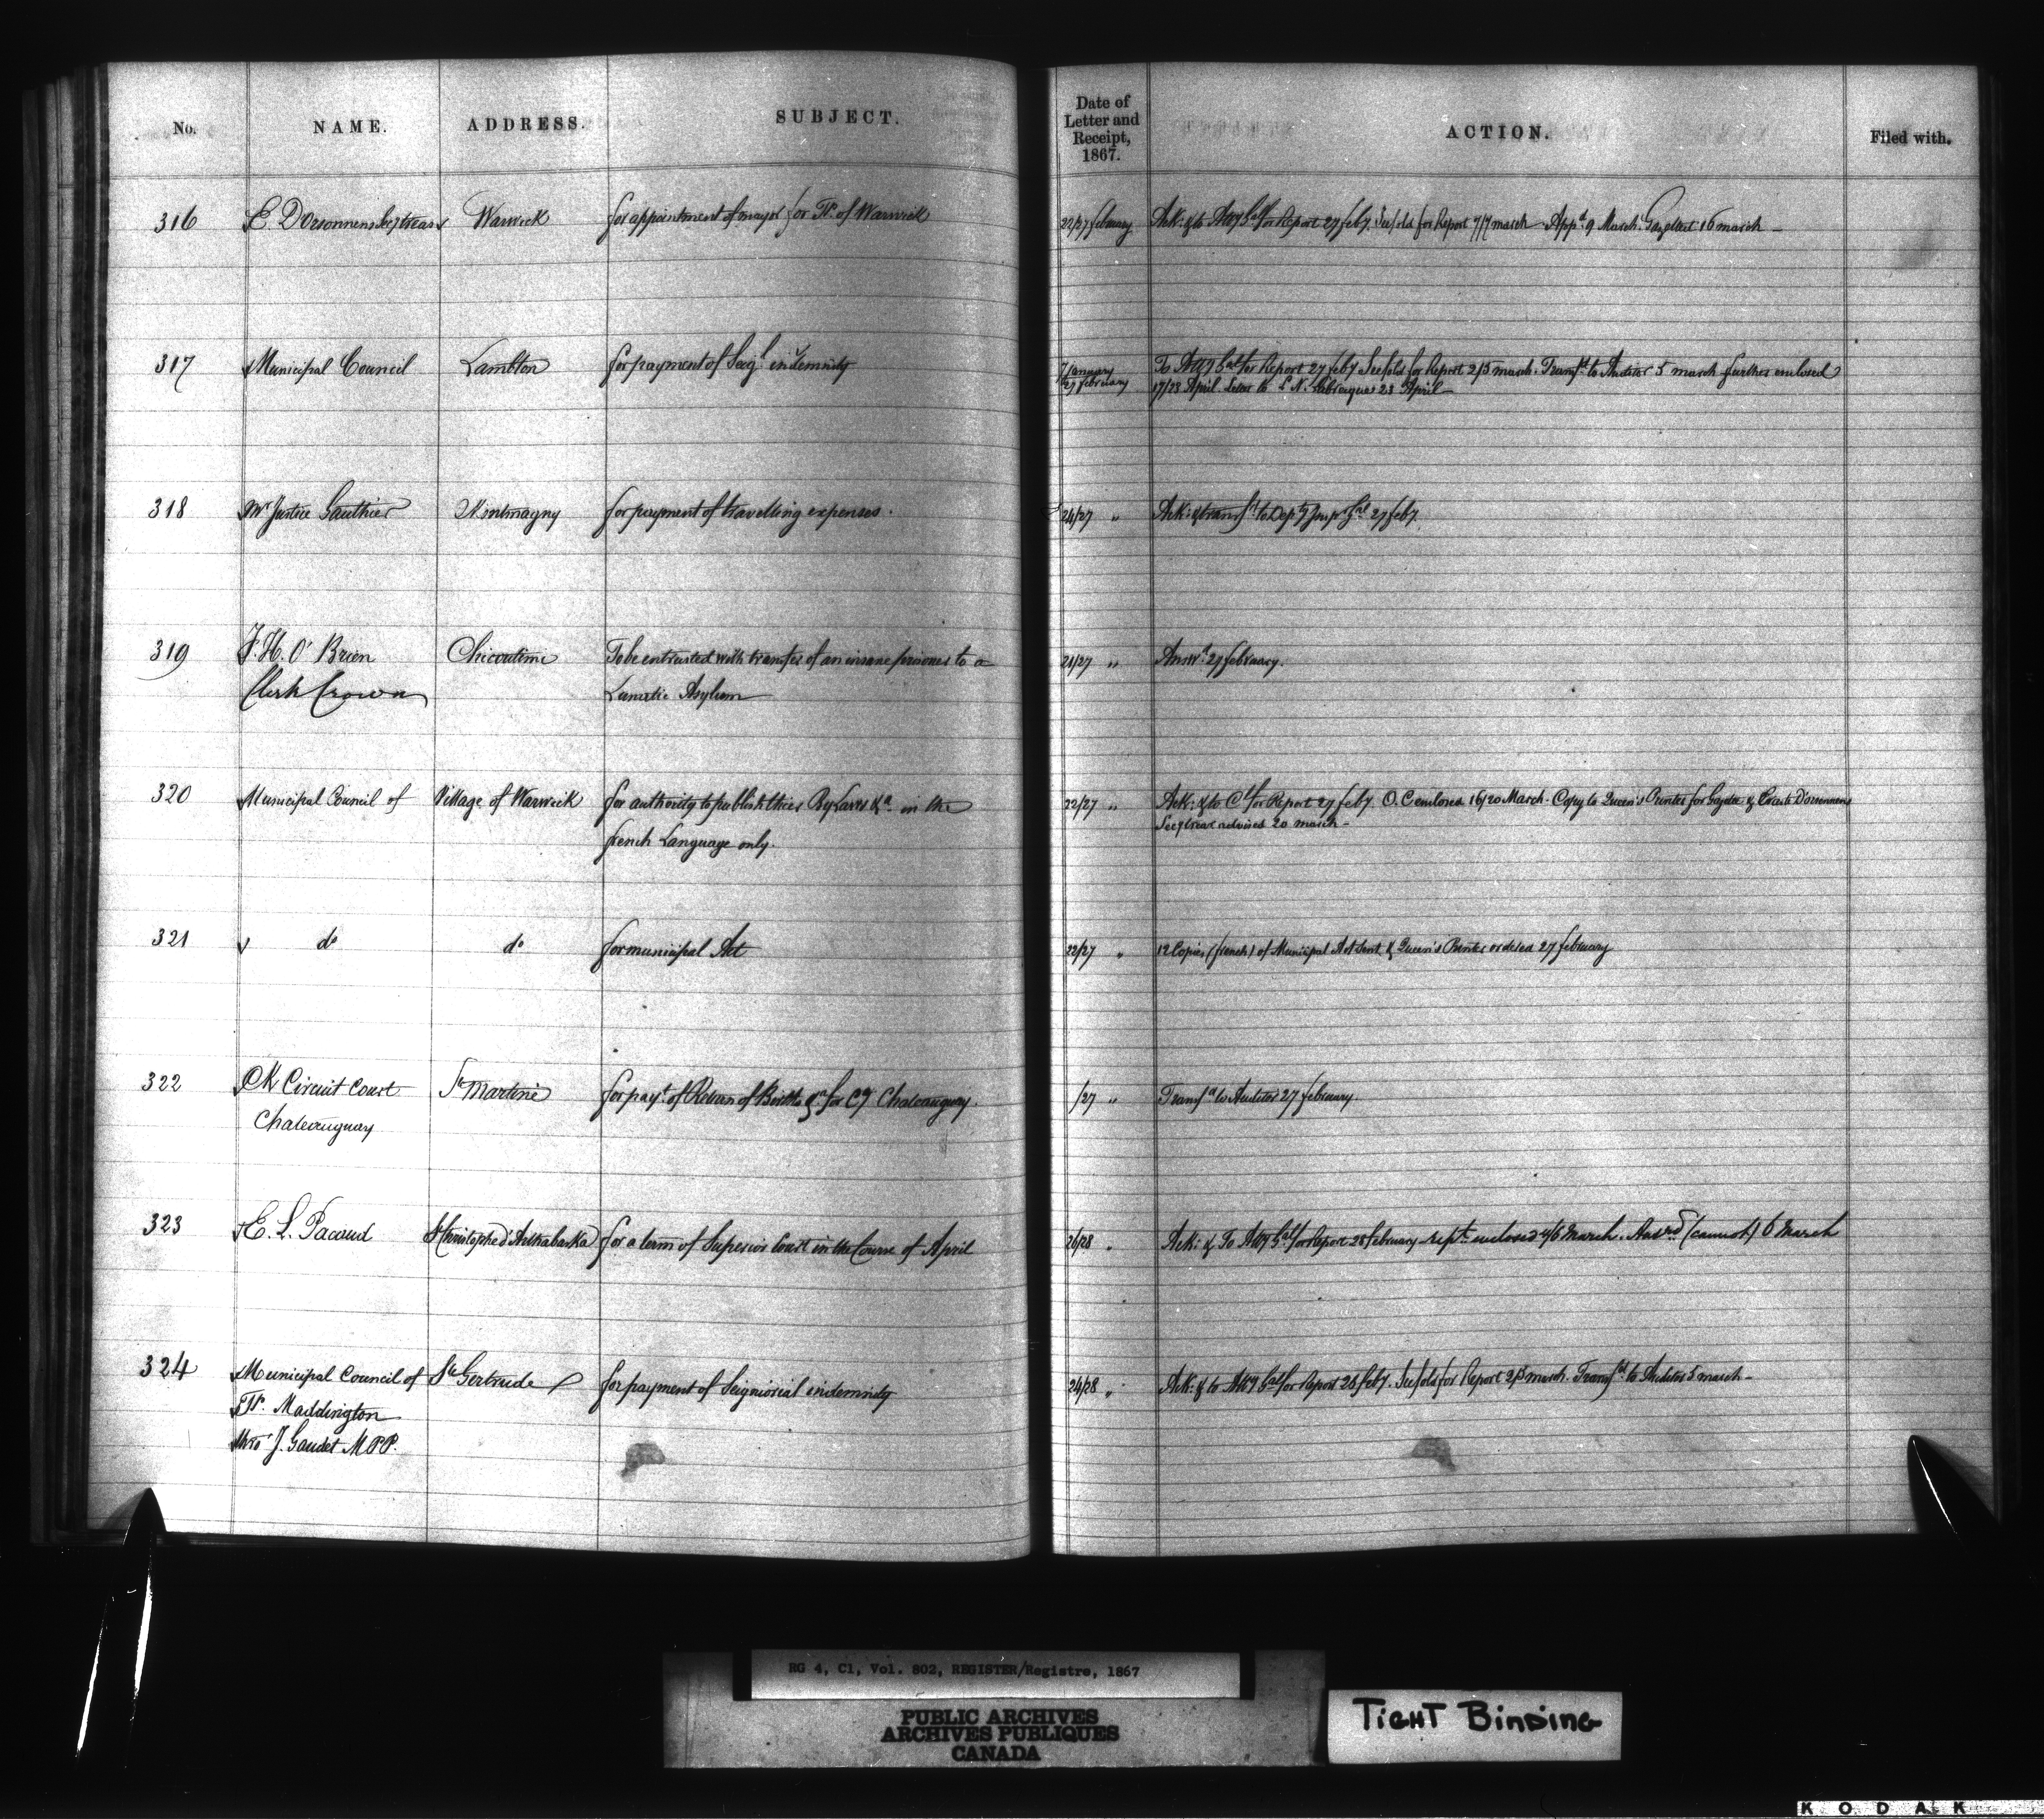 No. NAME. ADDRESS. SUBJECT. Date of Letter and Receipt, 1867. ACTION. Filed with.
316 E. D'Orsonnens Secy treasr Warwick for appointment of mayor for Tp. of Warwick 22/27 february Ack: & to Atty Gal for Report 27 feby. See fold for Report 7/7 march App.d 9 March. Gazetted 16 march
317 Municipal Council Lambton for payment of Seigl indemnity 7 January 27 february To Atty Gal for Report 27 feby See fold for Report 2/5 march. Transfd to Auditor 5 march further enclosed
17/23 April. Letter to L. N. 23 April
318 Mr Justice Gauthier Montmagny for payment of travelling expenses. 24/27 " Ack: & transfd to Depty Insp Gal 27 feby.
319 J. H. O'Brien Chicoutimi To be entrusted with transfer of an insane prisoner to a 21/27 " Answd 27 february.
Clerk Crown Lunatic Asylum
320 Municipal Council of Village of Warwick for authority to publish their By Laws &a in the 22/27 " Ack: & to Cl for Report 27 feby. O. C enclosed 16/20 March. Copy to Queen's Printer for Gazette & D'orsonnens
french Language only. Secy treas advised 20 march
321 do do for municipal Act 22/27 " 12 Copies (french) of Municipal Act sent & Queen's Printer ordered 27 february
322 Ck Circuit Court Ste Martine for payt of Return of Births &a for Cy Chateauguay. /27 " Transfd to Auditor 27 february
Chateauguay
323 E. L. Pacaud St Christophe d'Arthabaska for a term of Superior Court in the Course of April 26/28 " Ack: & To Atty Gal for Report 28 february rept enclosed 4/6 March. Answd (cannot) 6 March
324 Municipal Council of Ste Gertrude for payment of Seigniorial indemnity 24/28 " Ack: & to Atty Gal for Report 28 feby. See fold for Report 2/5 march. Transfd to Auditor 5 march
Tp. Maddington
thro' J. Gaudet M.P.P.
RG 4, C1, Vol. 802, REGISTER/Registre, 1867
PUBLIC ARCHIVES
ARCHIVES PUBLIQUES
CANADA
TIGHT BINDING
KODAK